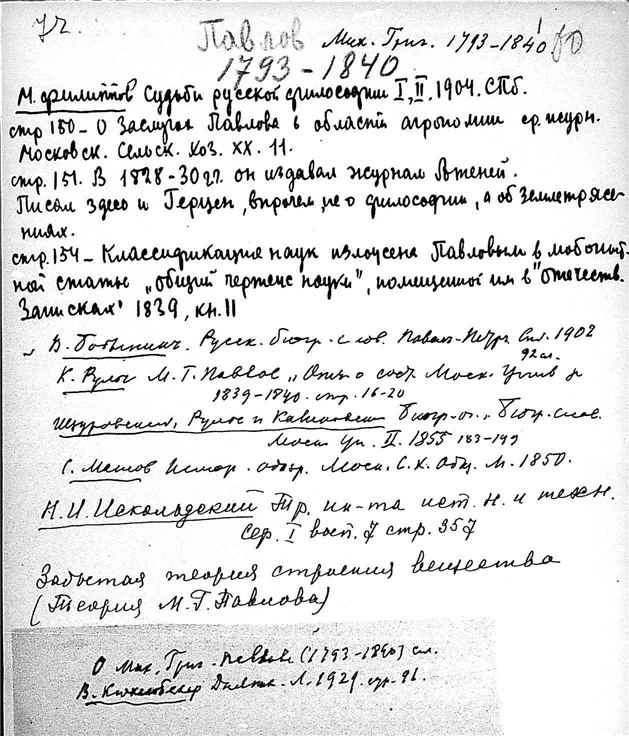 72.
Павлов Мих. Григ. 1793–1840
1793–1840
М. Филиппов Судьбы русской философии I, II. 1904. СПб.
стр 150 – О Заслугах Павлова в области агрономии ср. журн.
Московск. Сельск. Хоз. XX. 11.
стр. 151. В 1828–30 гг. он издавал журнал Атеней.
Писал здесь и Герцен, впрочем, не о философии, а об землетрясе-
ниях.
стр. 154 – Классификация наук изложена Павловым в любопыт-
ной статье „общий чертеж науки", помещенной им в "Отечеств.
Записках" 1839, кн. II
В. Русск. биогр. слов. Павел-Петр. 1902
92 сл.
К. Рулье М. Г. Павлов „Отч. о сост. Моск. Унив.
1839–1840. стр. 16–20
Щуровский, Рулье и Биогр. „Биогр. слов.
Моск. Ун. II. 1855 183–199
С. Маслов Истор. обозр. Моск. С. Х. Общ. М. 1850.
Н. И. Тр. ин-та ист. н. и техн.
Сер. I вып. 7 стр. 357
Забытая теория строения вещества
(Теория М. Г. Павлова)
О Мих. Григ. Павлове (1793–1840) см.
В. Кюхельбекер Дневник. Л. 1929. стр. 91.